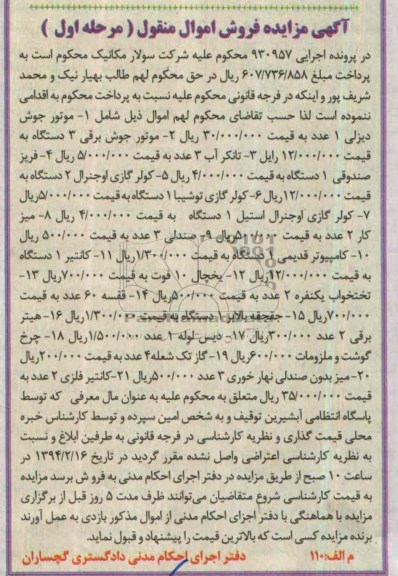 آگهی مزایده فروش اموال منقول ( مرحله اول )
در پرونده اجرایی ۹۳۰۹۵۷ محکوم علیه شرکت سولار مکانیک محکوم است به
پرداخت مبلغ ۶۰۷/۷۳۶/۸۵۸ ریال در حق محکوم لهم طالب بهیار نیک و محمد
شریف پور و اینکه در فرجه قانونی محکوم علیه نسبت به پرداخت محکوم به اقدامی
ننموده است لذا حسب تقاضای محکوم لهم اموال ذیل شامل ۱- موتور جوش
دیزلی ۱ عدد به قیمت ۳۰/۰۰۰/۰۰۰ ریال ۲- موتور جوش برقی ۳ دستگاه به
قیمت ۱۲/۰۰۰/۰۰۰ رایل ۳- تانکر آب ۳ عدد به قیمت ۵/۰۰۰/۰۰۰ ریال ۴- فریز
صندوقی ۱ دستگاه به قیمت ۴/۰۰۰/۰۰۰ ریال ۵- کولر گازی اوجنرال ۲ دستگاه به
قیمت ۱۲/۰۰۰/۰۰۰ریال ۶- کولر گازی توشیبا ۱ دستگاه به قیمت ۵/۰۰۰/۰۰۰ریال
۷- کولر گازی اوجنرال استیل ۱ دستگاه به قیمت ۴/۰۰۰/۰۰۰ ریال ۸- میز
کار ۲ عدد به قیمت ۵۰۰/۰۰۰ریال ۹- صندلی ۳ عدد به قیمت ۵۰۰/۰۰۰ ریال
۱۰- کامپیوتر قدیمی ۱ دستگاه به قیمت ۱/۳۰۰/۰۰۰ریال ۱۱- کانتیر ۱ دستگاه
به قیمت ۱۲/۰۰۰/۰۰۰ریال ۱۲- یخچال ۱۰ فوت به قیمت ۷۰۰/۰۰۰ریال ۱۳-
تختخواب یکنفره ۲ عدد به قیمت ۵۰۰/۰۰۰ریال ۱۴- قفسه ۶۰ عدد به قیمت
۷۰۰/۰۰۰ریال ۱۵- جغجغه بالابر ۱ دستگاه به قیمت ۱/۳۰۰/۰۰۰ریال ۱۶- هیتر
برقی ۲ عدد ۳۰۰/۰۰۰ریال ۱۷- دیس لوله ۱ عدد ۱/۵۰۰/۰۰۰ریال ۱۸- چرخ
گوشت و ملزومات ۶۰۰/۰۰۰ریال ۱۹- گاز تک شعله ۴ عدد به قیمت ۲۰۰/۰۰۰ریال
۲۰- میز بدون صندلی نهار خوری ۳ عدد ۵۰۰/۰۰۰ریال ۲۱- کانتیر فلزی ۲ عدد به
قیمت ۳۵/۰۰۰/۰۰۰ ریال متعلق به محکوم علیه به عنوان مال معرفی که توسط
پاسگاه انتظامی آبشیرین توقیف و به شخص امین سپرده و توسط کارشناس خبره
محلی قیمت گذاری و نظریه کارشناسی در فرجه قانونی به طرفین ابلاغ و نسبت
به نظریه کارشناسی اعتراضی واصل نشده مقرر گردید در تاریخ ۱۳۹۴/۲/۱۶
ساعت ۱۰ صبح از طریق مزایده در دفتر اجرای احکام مدنی به فروش برسد مزایده
به قیمت کارشناسی شروع متقاضیان می‌توانند ظرف مدت ۵ روز قبل از برگزاری
مزایده با هماهنگی با دفتر اجزای احکام مدنی از اموال مذکور بازدی به عمل آورند
برنده مزایده کسی است که بالاترین قیمت را پیشنهاد و قبول نماید.
م الف:۱۱۰ دفتر اجرای احکام مدنی دادگستری گچساران